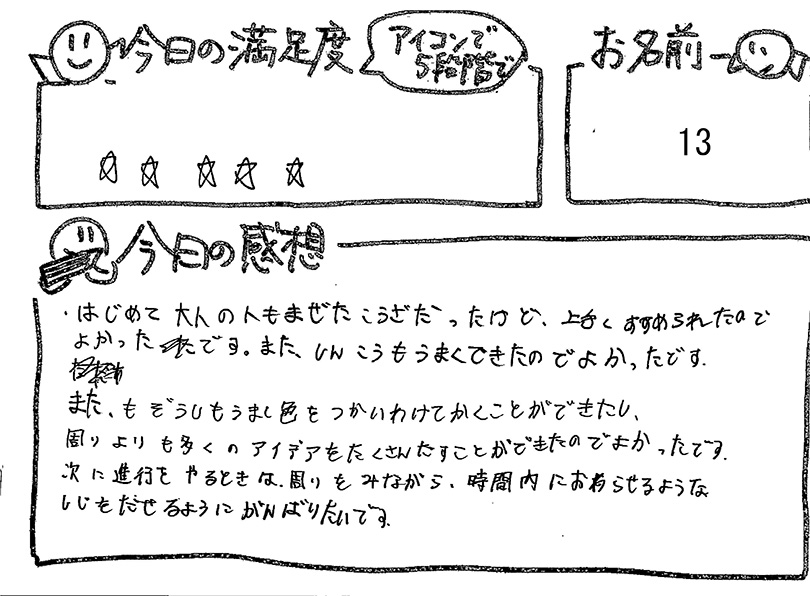 今日の満足度
アイコンで
5段階で
お名前
☆ ☆ ☆ ☆ ☆
13
今日の感想
・はじめて 大人の人もまぜたこうざだったけど、上手くすすめられたので
よかったです。また、しんこうもうまくできたのでよかったです。
また、もぞうしもうまく色をつかいわけてかくことができたし、
周りよりも多くのアイデアをたくさんだすことができたのでよかったです。
次に進行をやるときは、周りをみながら、時間内におわらせるような
しじをだせるようにがんばりたいです。